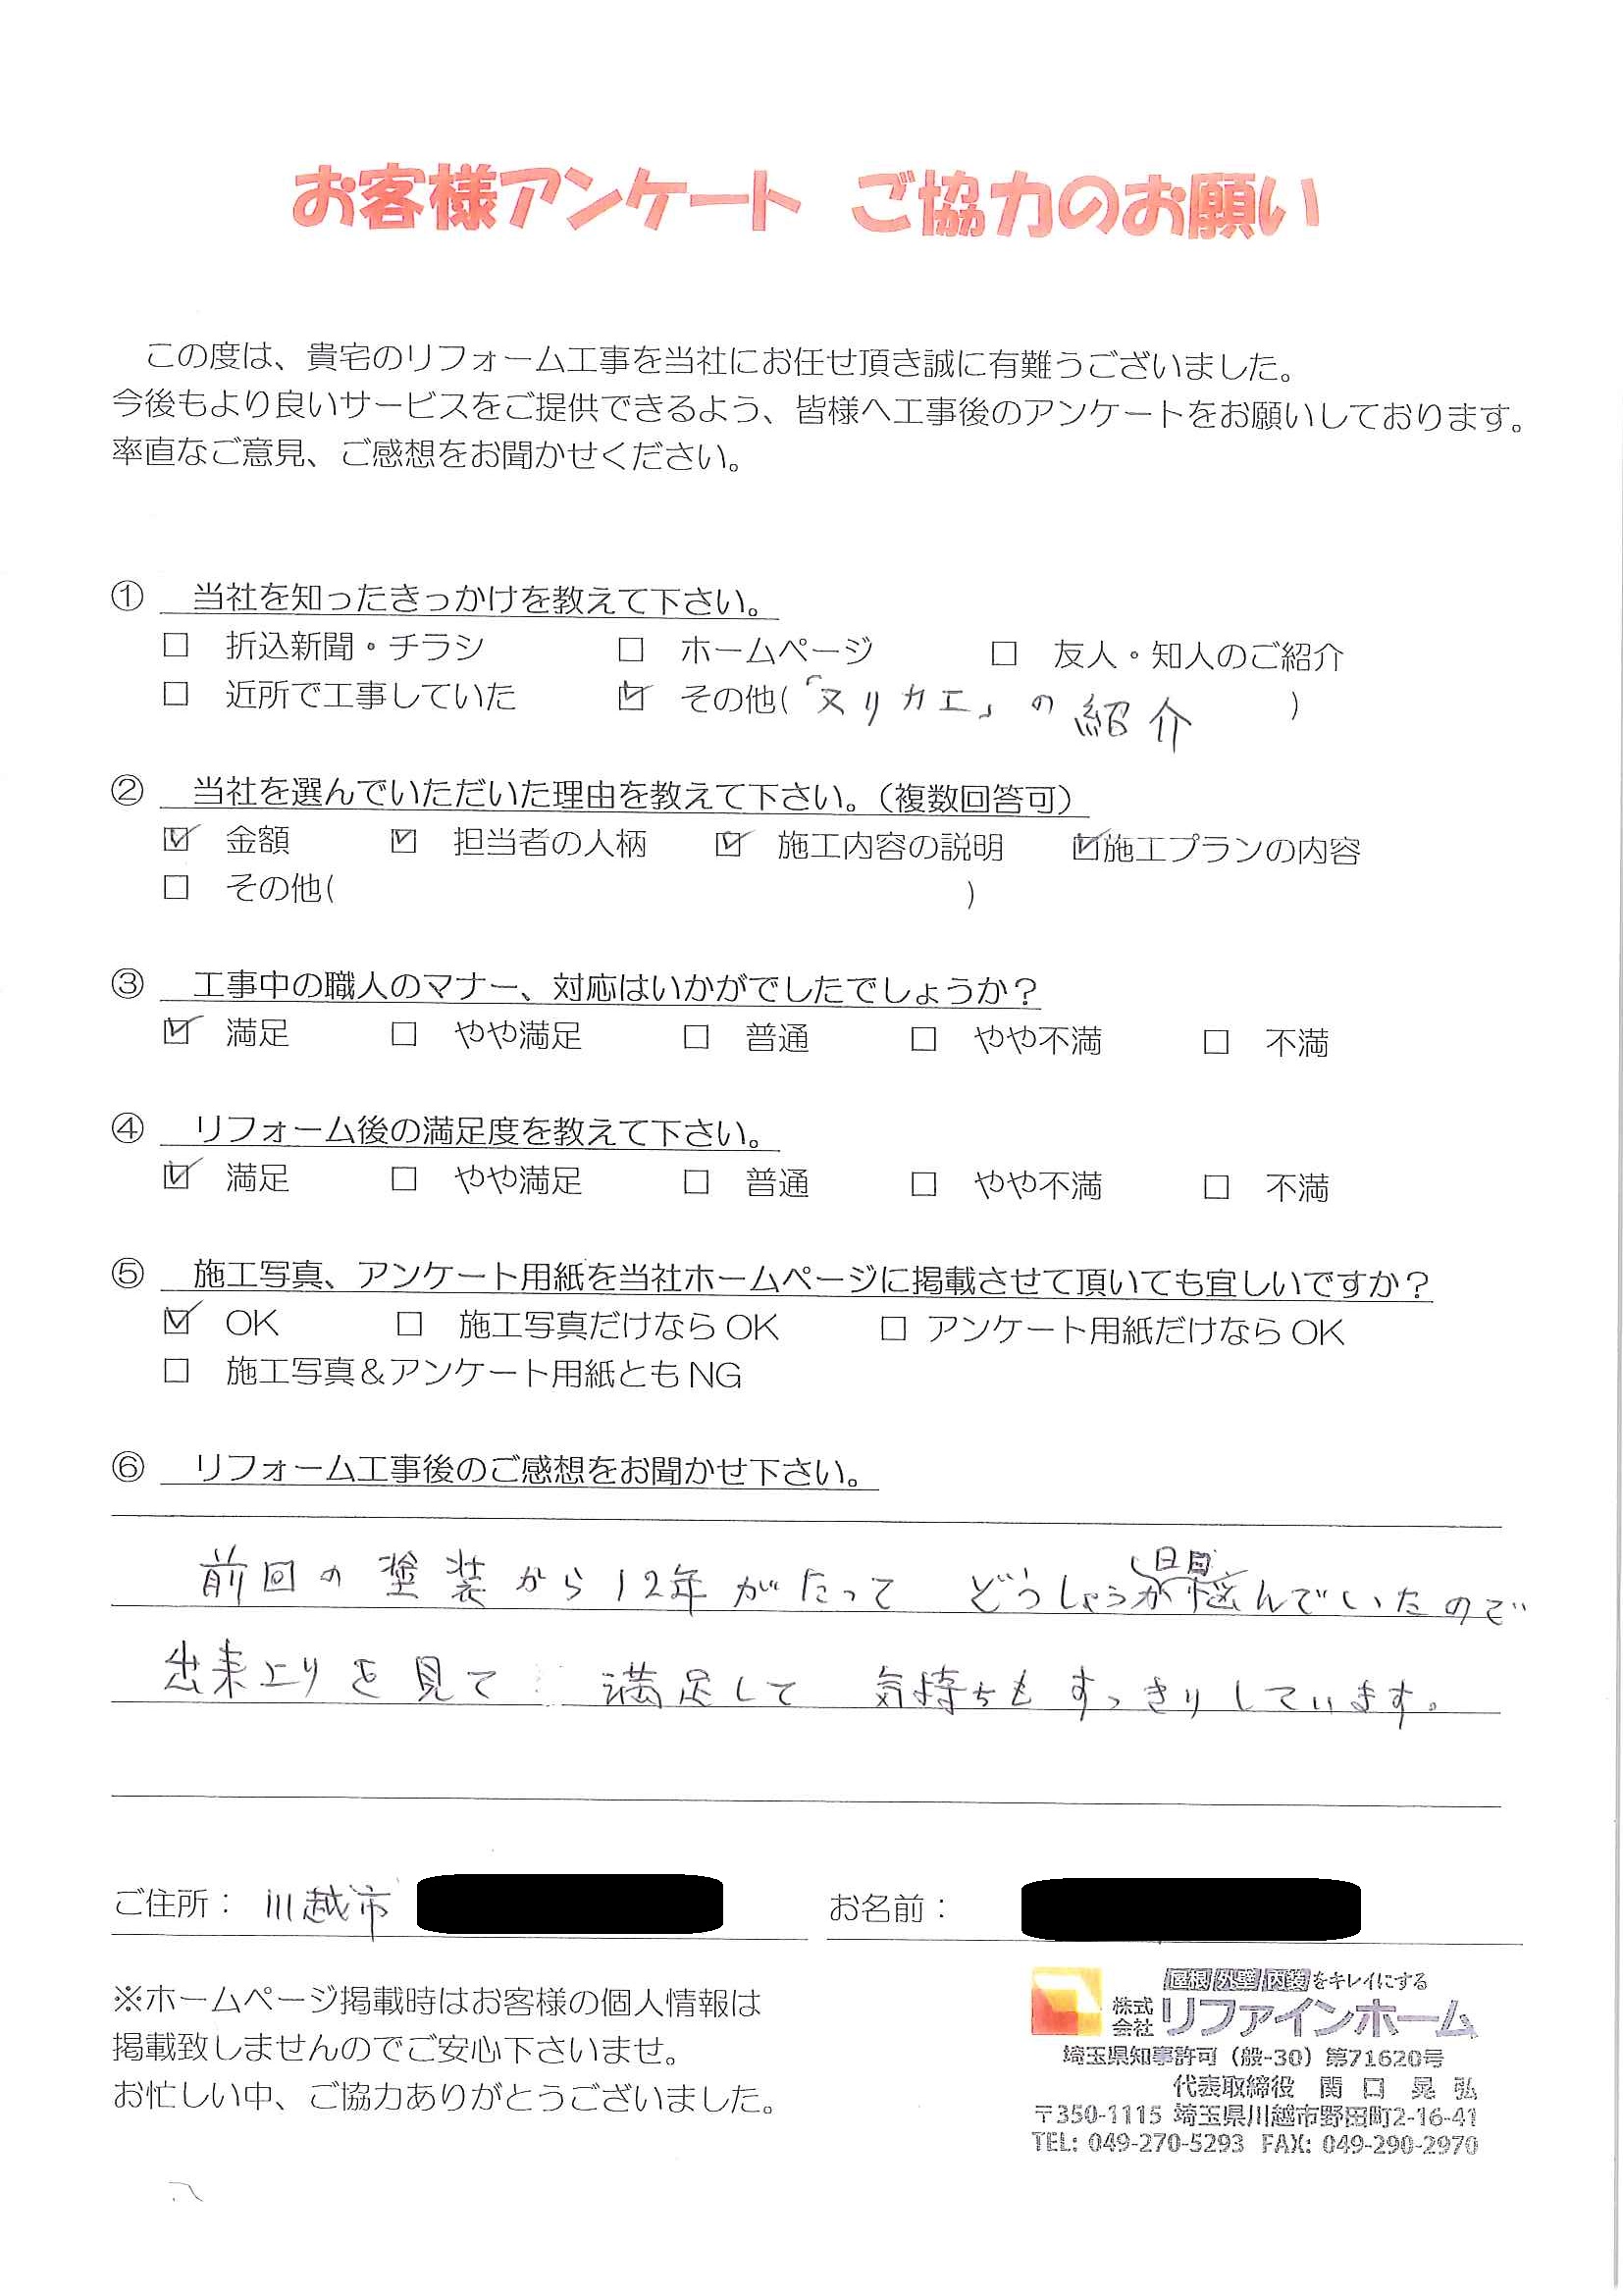 お客様アンケート ご協力のお願い
この度は、貴宅のリフォーム工事を当社にお任せ頂き誠に有難うございました。
今後もより良いサービスをご提供できるよう、皆様へ工事後のアンケートをお願いしております。
率直なご意見、ご感想をお聞かせください。
① 当社を知ったきっかけを教えて下さい。
□ 折込新聞・チラシ □ ホームページ □ 友人・知人のご紹介
□ 近所で工事していた ☑ その他(「ヌリカエ」の紹介 )
② 当社を選んでいただいた理由を教えて下さい。（複数回答可）
☑ 金額 ☑ 担当者の人柄 ☑ 施工内容の説明 ☑ 施工プランの内容
□ その他( )
③ 工事中の職人のマナー、対応はいかがでしたでしょうか？
☑ 満足 □ やや満足 □ 普通 □ やや不満 □ 不満
④ リフォーム後の満足度を教えて下さい。
☑ 満足 □ やや満足 □ 普通 □ やや不満 □ 不満
⑤ 施工写真、アンケート用紙を当社ホームページに掲載させて頂いても宜しいですか？
☑ OK □ 施工写真だけなら OK □ アンケート用紙だけなら OK
□ 施工写真＆アンケート用紙とも NG
⑥ リフォーム工事後のご感想をお聞かせ下さい。
前回の塗装から12年がたって どうしようか悩んでいたので
出来上りを見て 満足して 気持ちもすっきりしています。
ご住所： 川越市 お名前：
※ホームページ掲載時はお客様の個人情報は
掲載致しませんのでご安心下さいませ。
お忙しい中、ご協力ありがとうございました。
屋根 外壁 内装をキレイにする
株式会社 リファインホーム
埼玉県知事許可（般-30）第71620号
代表取締役 関口 晃弘
〒350-1115 埼玉県川越市野田町2-16-41
TEL: 049-270-5293 FAX: 049-290-2970